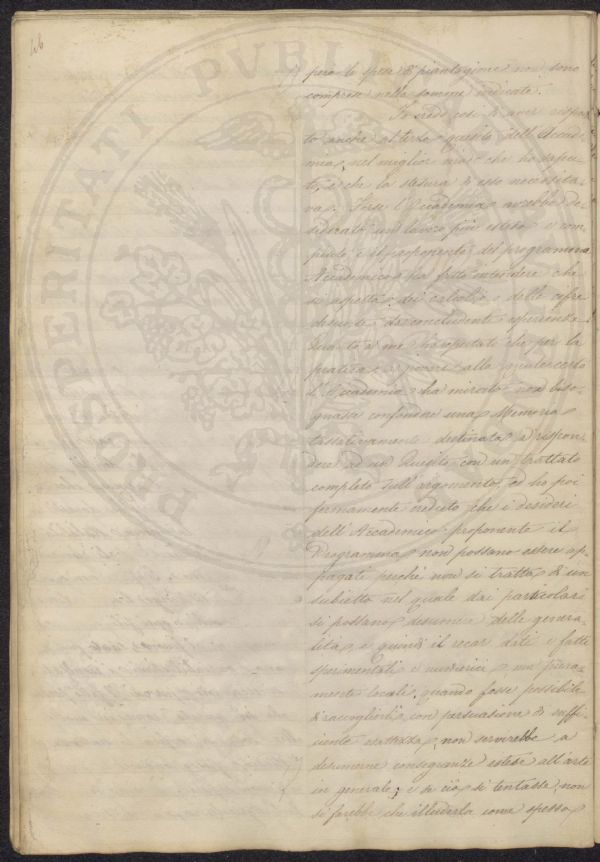 46
però le spese di piantagione non sono
comprese nelle somme indicate.
Io credo così di aver rispos-
to anche al terzo quesito dell'Accade-
mia, nel miglior modo che ho sapu-
to, e che la stesura di esso necessita-
va. Forse l'Accademia avrebbe de-
siderato un lavoro più esteso e com-
pleto, e il proponente del programma
Accademico, ha fatto intendere che
si aspetta dei calcoli, e delle cifre
desunte da concludenti esperienze.
Quanto a me ho reputato che per la
pratica, e giovare alla quale certo
l'Accademia ha mirato non biso-
gnasse confondere una Memoria
tassativamente destinata a rispon-
dere ad un Quesito con un trattato
completo sull'argomento, ed ho poi
fermamente creduto che i desideri
dell'Accademico proponente il
Programma non possano essere ap-
pagati perché non si tratta di un
subietto nel quale dai particolari
si possano desumere delle genera-
lità, e quindi il recar dati e fatti
sperimentali e numerici, ma pura-
mente locali, quando fosse possibile
di raccoglierli, con persuasione di suffi-
ciente esattezza, non servirebbe a
desumerne conseguenze estese all'arte
in generale; e se ciò si tentasse, non
si farebbe che illuderla come spesso
PROSPERITATI PVBLICAE